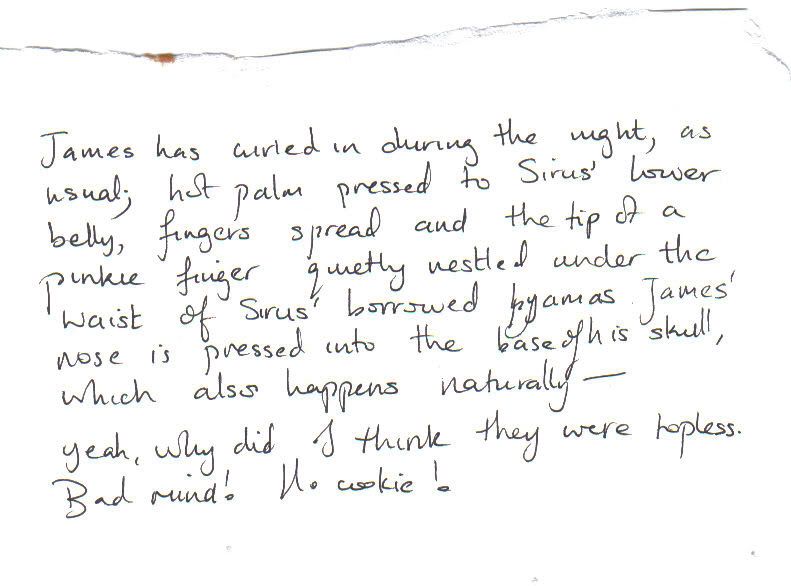 James has curled in during the night, as
usual; hot palm pressed to Sirus' lower
belly, fingers spread and the tip of a
pinkie finger quietly nestled under the
waist of Sirus' borrowed pyamas. James'
nose is pressed into the base of his skull,
which also happens naturally —
yeah, why did I think they were topless.
Bad mind! No cookie!